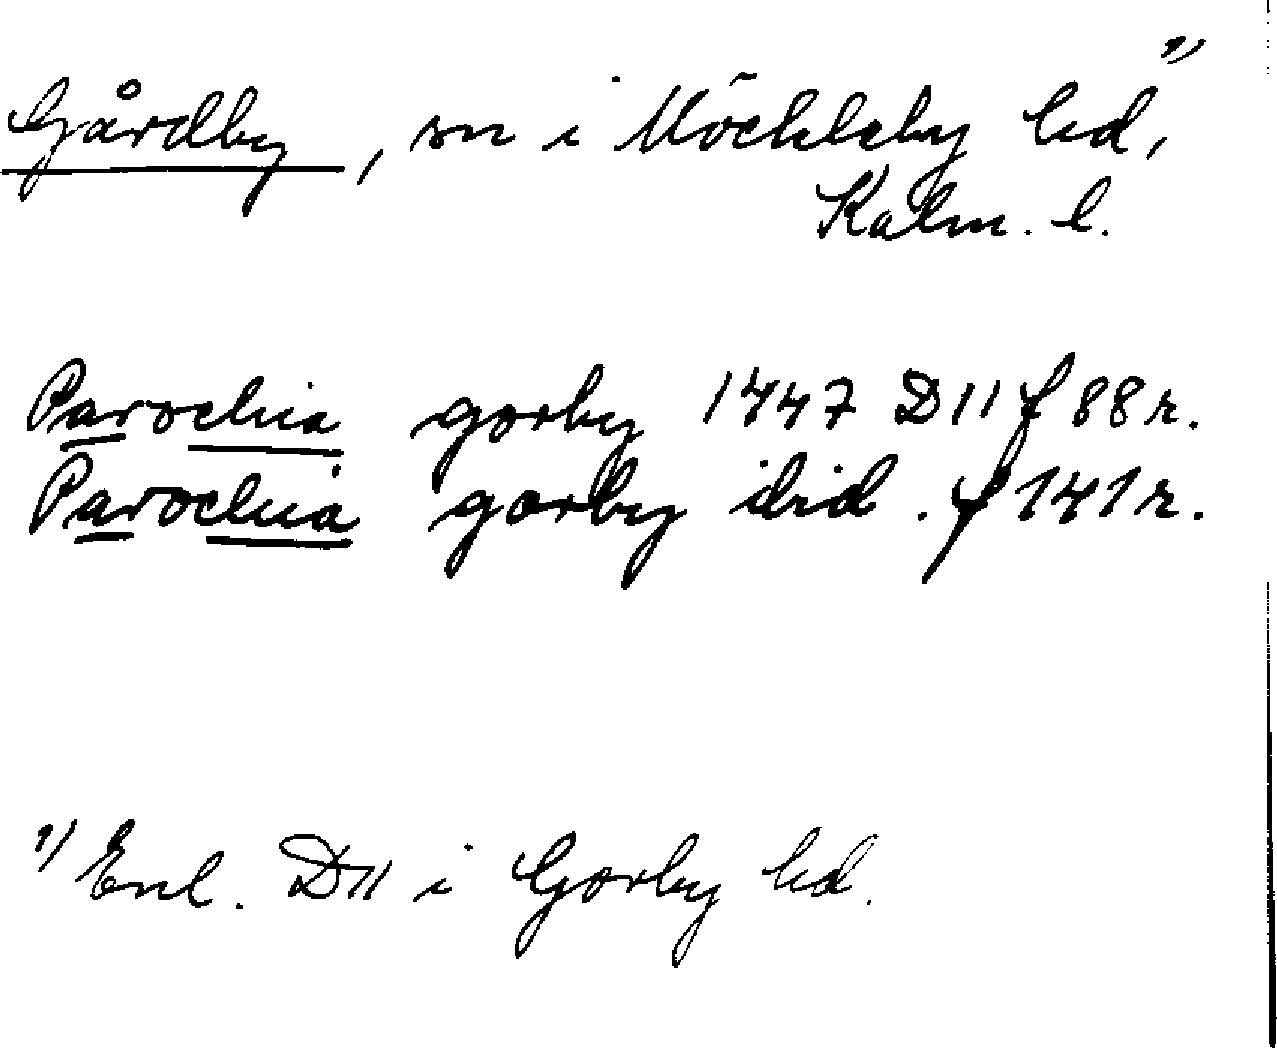 Gårdby, sn i Möckleby hd, 1)
Kalm. l.
Parochia gorby 1447 D11 f 88 r.
Parochia gorby ibid. f 141 r.
1) Enl. D11 i Gorby hd.